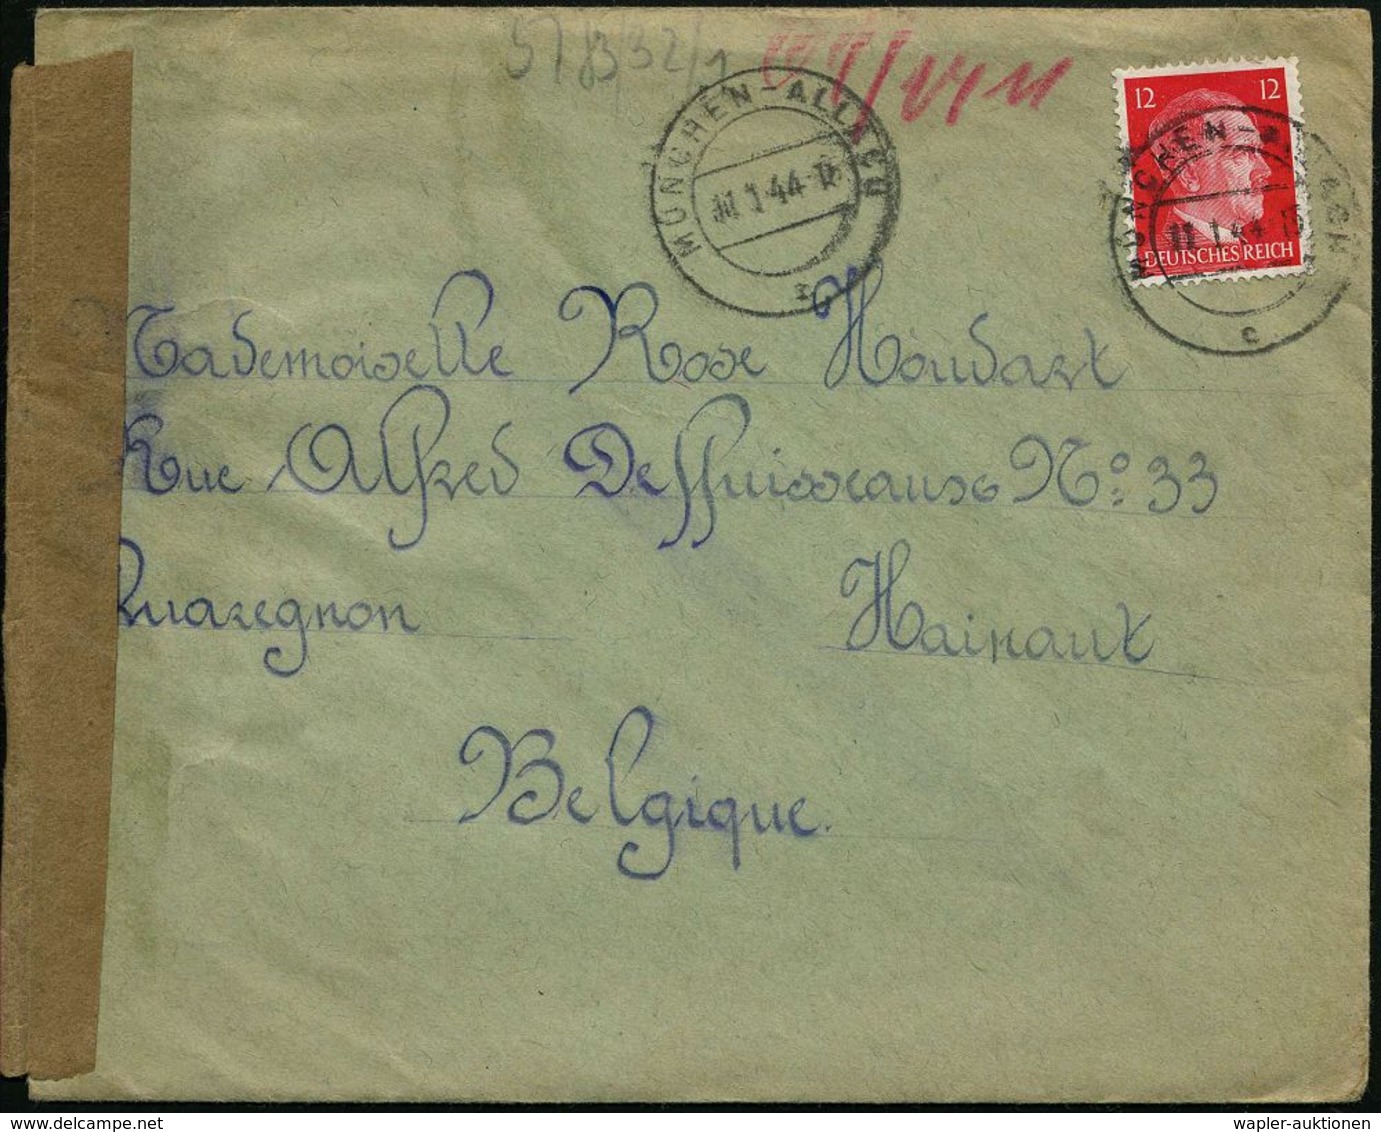 57/3/32/1
MÜNCHEN-ALLACH
11.1.44-18
c
12 12
DEUTSCHES REICH
MÜNCHEN-ALLACH
11.1.44-15
c
Mademoiselle Rose Houdart
Rue Alfred Deffuisseauxs No: 33
Quaregnon Hainaut
Belgique.
wapler-auktionen